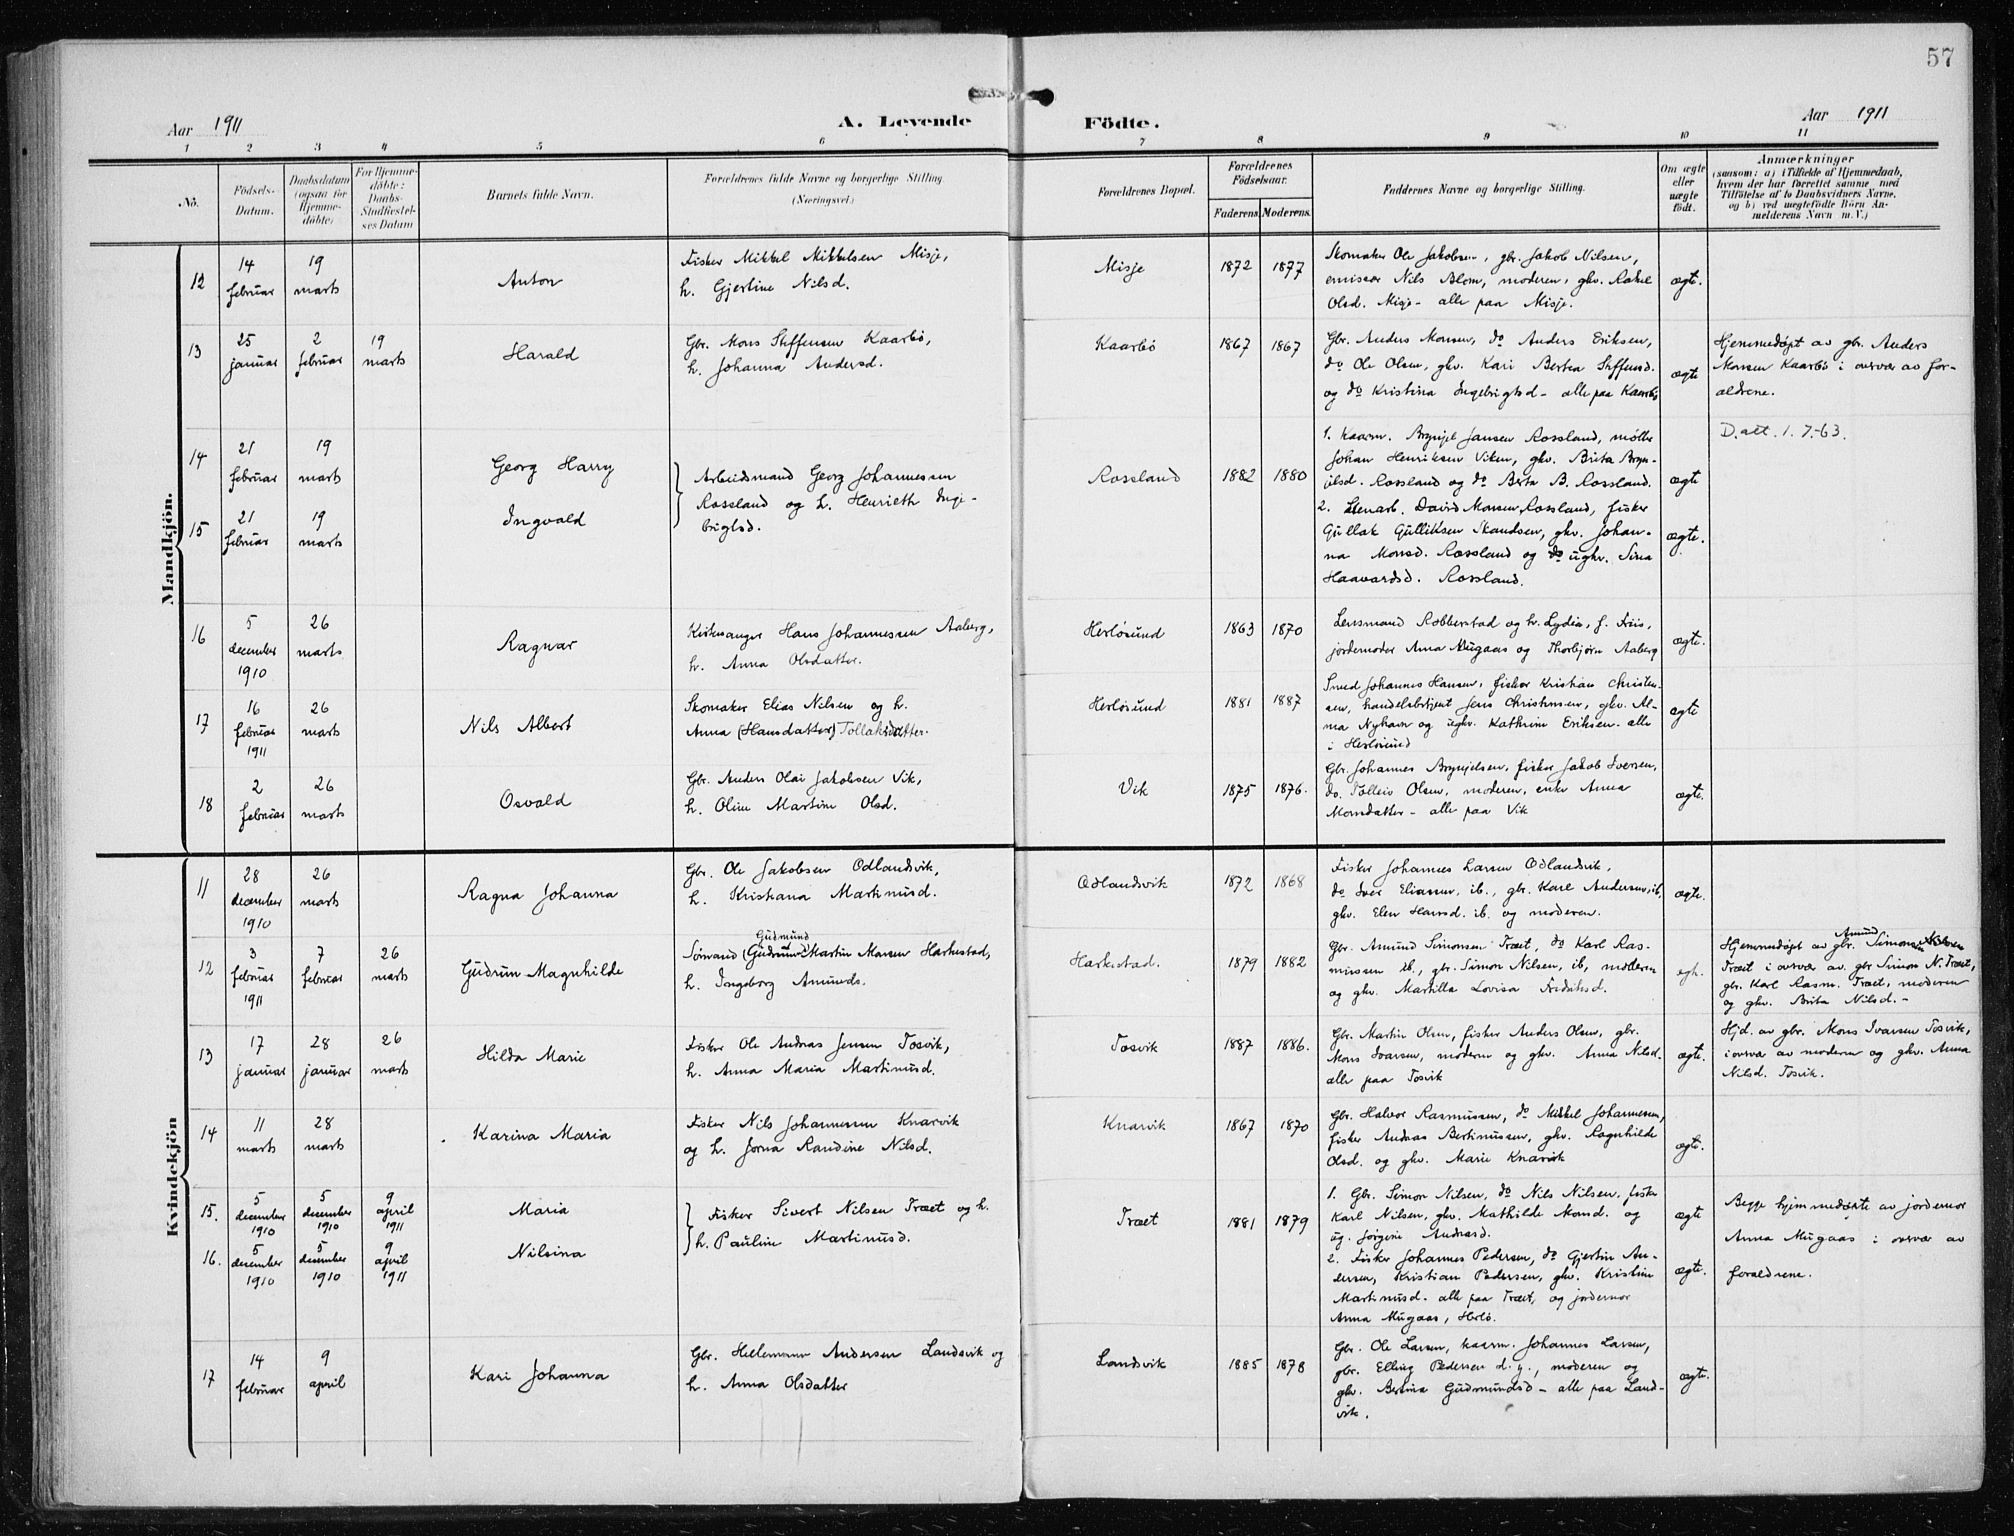 57
Aar 1911
A. Levende Födte.
Aar 1911
1 2 3 4 5 6 7 8 9 10 11
No.
Födsels-
Datum.
Daabsdatum
(ogsaa for
Hjemme-
døbte)
For Hjemme-
døbte:
Daabs-
Stadfæstel-
ses Datum
Barnets fulde Navn.
Forældrenes fulde Navne og borgerlige Stilling.
(Næringsvei.)
Forældrenes Bopæl.
Forældrenes
Födselsaar.
Faderens. Moderens.
Faddernes Navne og borgerlige Stilling.
Om ægte
eller
uægte
født.
Anmærkninger
(saasom: a) i Tilfælde af Hjemmedaab,
hvem der har forrettet samme, med
Tilføielse af to Daabsvidners Navne,
og b) ved uægtefødte Börn An-
melderens Navn m. V.)
Mandkjön.
12
14
februar
19
marts
Anton
Fisker Mikkel Mikkelsen Misje,
h. Gjertine Nilsd.
Misje
1872 1877
Skomaker Ole Jakobsen, gbr. Jakob Nilsen,
emissær Nils Blom, moderen, gkv. Rakel
Olsd. Misje - alle paa Misje.
ægte.
13
25
januar
2
februar
19
marts
Harald
Gbr. Mons Steffensen Kaarbø,
h. Johanna Andersd.
Kaarbø
1867 1867
Gbr. Anders Monsen, do Anders Eriksen,
do Ole Olsen, gkv. Kari Bertea Steffensd.
og do Kristina Ingebrigtsd - alle paa Kaarbø
ægte
Hjemmedøpt av gbr. Anders
Monsen Kaarbø i overvær av for-
ældrene.
14
21
februar
19
marts
Georg Harry
15
21
februar
19
marts
Ingvald
Arbeidsmand Georg Johannessen
Rossland og h. Henrieth Inge-
brigtsd.
Rossland
1882 1880
1. Kaarm. Brynjel Jansen Rossland, møller
Johan Henriksen Viken, gkv. Brita Bryn-
jelsd. Rossland og do Berta B. Rossland.
2. Stenarb. David Monsen Rossland, fisker
Gullak Gulliksen Skandsen, gkv. Johan-
na Monsd. Rossland og do ugkv. Sina
Haavardsd. Rossland.
ægte
ægte.
D. att. 1.7.-63.
16
5
december
1910
26
marts
Ragnar
Kirkesanger Hans Johannessen Aaberg,
h. Anna Olsdatter.
Herløsund
1863 1870
Lensmand Robberstad og h. Lydia, f. Friis,
jordemoder Anna Mugaas og Thorbjørn Aaberg
ægte.
17
16
februar
1911
26
marts
Nils Albert
Skomaker Elias Nilsen og h.
Anna (Hansdatter) Tollaksdatter.
Herløsund
1881 1887
Smed Johannes Hansen, fisker Kristian Christen-
sen, handelsbetjent Jens Christensen, gkv. Al-
ma Nyhavn og ugkv. Kathrine Eriksen - alle
i Herløsund
ægte
18
2
februar
26
marts
Osvald
Gbr. Anders Olai Jakobsen Vik,
h. Oline Martine Olsd.
Vik
1875 1876.
Gbr. Johannes Brynjelsen, fisker Jakob Iversen,
do. Tolleiv Olsen, moderen, enke Anna
Monsdatter - alle paa Vik
ægte.
Kvindekjön
11
28
december
1910
26
marts
Ragna Johanna
Gbr. Ole Jakobsen Odlandsvik,
h. Kristiana Martinusd.
Odlandsvik
1872 1868
Fisker Johannes Larsen Odlandsvik,
do Iver Eliassen, ib., gbr. Karl Andersen, ib,
gkv. Elen Hansd. ib. og moderen.
ægte.
12
3
februar
1911
7
februar
26
marts
Gudrun Magnhilde
Gudmund
Sømand (Gudrund) Martin Monsen Harkestad,
h. Ingeborg Amunds.
Harkestad.
1879 1882
Gbr. Amund Simonsen Træet, do Karl Ras-
mussen ib., gbr. Simon Nilsen, ib, moderen
og gkv. Martilla Lovisa Fredriksd.
egt.
Amund
Hjemmedøpt av gbr. Simonsen Nilsen
Træet i overvær av gbr Simon N. Træet,
gbr. Karl Rasm. Træet, moderen
og gkv. Brita Nilsd. -
13
17
januar
28
januar
26
marts
Hilda Marie
Fisker Ole Andreas Jensen Tosvik,
h. Anna Maria Martinusd.
Tosvik
1887 1886.
Gbr. Martin Olsen, fisker Anders Olsen, gbr.
Mons Ivarsen, moderen og gkv. Anna Nilsd.
alle paa Tosvik
ægte.
Hjd. av gbr. Mons Ivarsen Tosvik,
i overvær av moderen og gkv. Anna
Nilsd. Tosvik.
14
11
marts
28
marts
Karina Maria
Fisker Nils Johannessen Knarvik
og h. Jorna Randine Nilsd.
Knarvik
1867 1870
Gbr. Halvor Rasmussen, do Mikkel Johannessen,
fisker Andreas Bertinussen, gkv. Ragnhilde
Olsd. og gkv. Marie Knarvik
ægte.
15.
5
december
1910
5
december
1910
9
april
1911
Maria
16.
5
december
1910
5
december
1910
9
april
1911
Nilsina
Fisker Sivert Nilsen Træet og h.
h. Pauline Martinusd.
Træet
1881 1879
1. Gbr. Simon Nilsen, do Nils Nilsen, fisker
Karl Nilsen, gkv. Mathilde Monsd. og
ug. Jørgine Andreasd.
2. Fisker Johannes Pedersen, do Gjertin An-
dersen, Kristian Pedersen, gkv. Kristine
Martinusd. alle paa Træet, og jordemor
Anna Mugaas, Herlø.
ægte
ægte.
Begge hjemmedøpte av jordemor
Anna Mugaas i overvær av
forældrene.
17
14
februar
9
april
Kari Johanna
Gbr. Hellemann Andersen Landsvik og
h. Anna Olsdatter
Landsvik
1885 1878
Gbr. Ole Larsen, kaarm. Johannes Larsen,
gbr. Elling Pedersen d. y., moderen og
gkv. Bertina Gudmundsd - alle paa Land-
vik.
ægte.